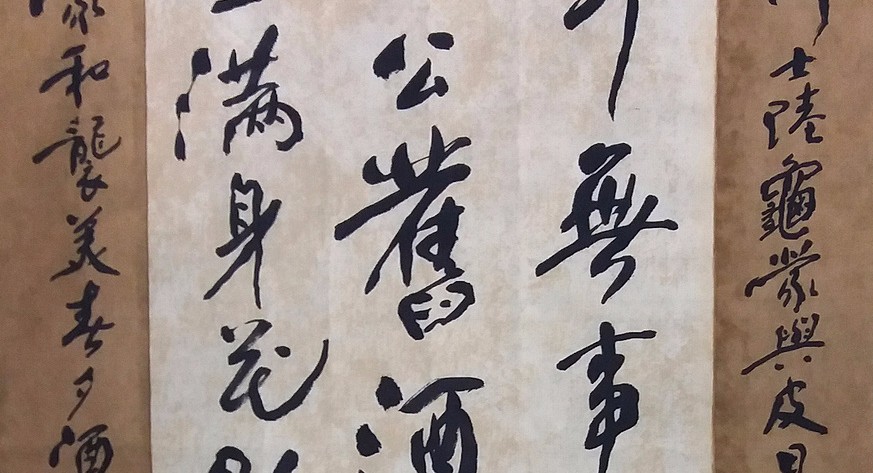 士陸龜蒙與皮日
無事
公舊酒
滿身花
和襲美春夕酒